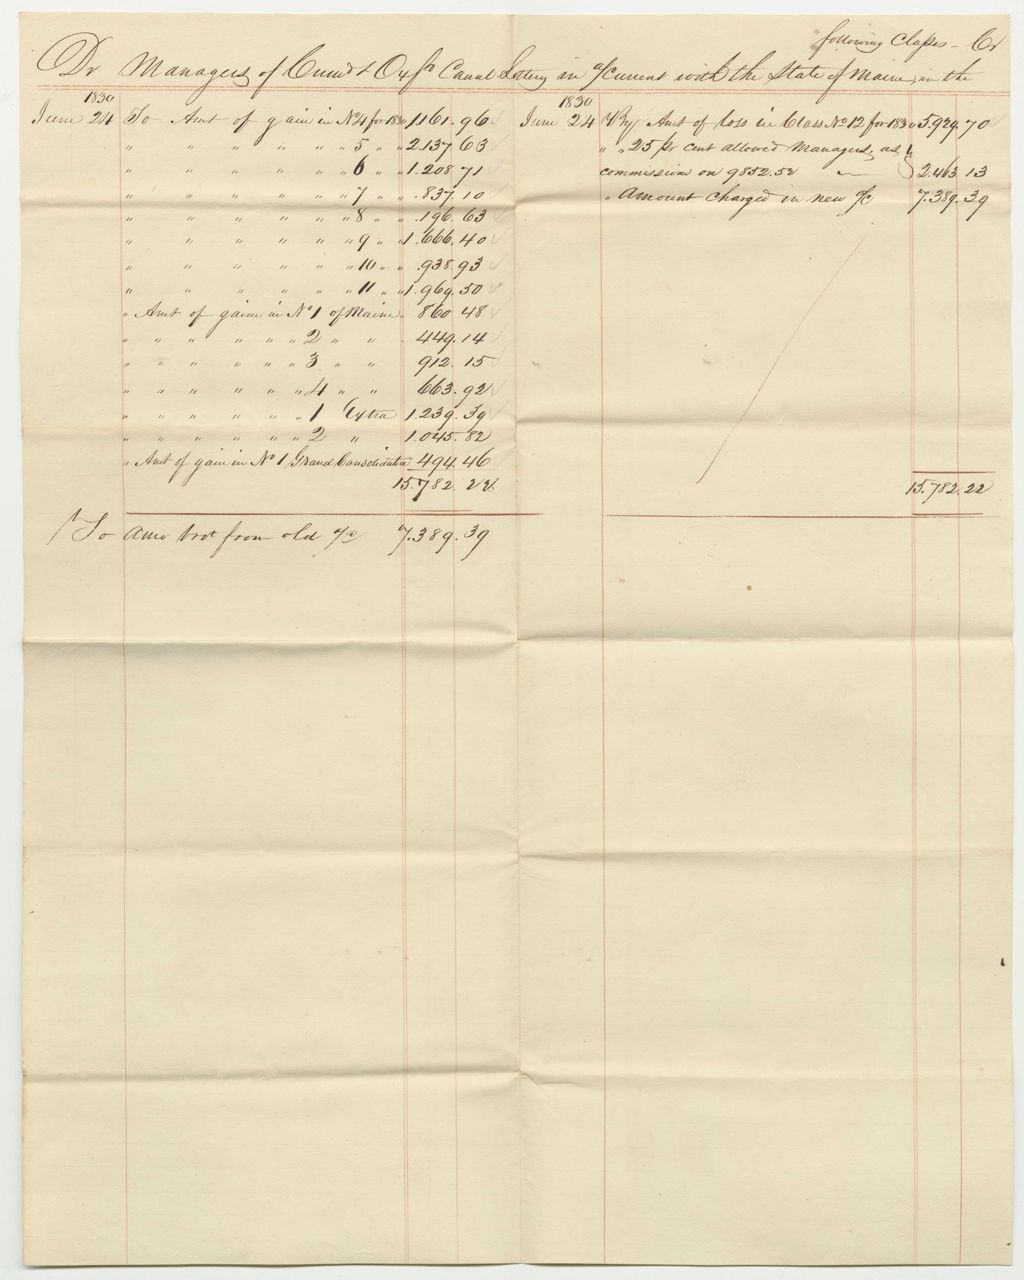 following Classes - Cr
Dr Managers of Cumd & Oxfd Canal Lottery in a/c current with the State of Maine, in the
1830
June 24 To Amt of gain in No 4 for 1830 1161.96
" " " " " " 5 " " 2.137.63
" " " " " " 6 " " 1.208.71
" " " " " " 7 " " .837.10
" " " " " " 8 " " .196.63
" " " " " " 9 " " 1.666.40
" " " " " " 10 " " .938.93
" " " " " " 11 " " 1.969.50
" Amt of gain in No 1 of Maine 860.48
" " " " " " 2 " " 449.14
" " " " " " 3 " " 912.15
" " " " " " 4 " " 663.92
" " " " " " 1 Extra 1.239.39
" " " " " " 2 " 1.045.82
" Amt of gain in No 1 Grand Consolidated 494.46
15.782.22
To Amo brot from old a/c 7.389.39
1830
June 24 By Amt of loss in Class No 12 for 1830 5.929.70
" " 25 pr cent allowed Managers as
commission on 9852.52 2.463.13
" Amount charged in new a/c 7.389.39
15.782.22